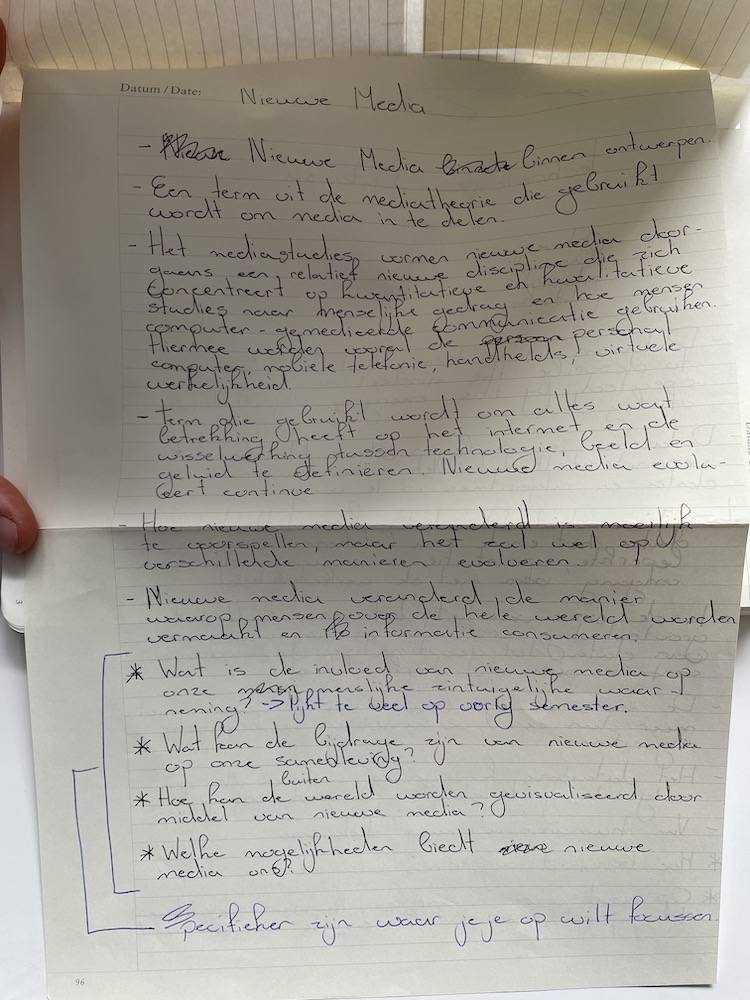 Datum / Date: Nieuwe Media
- Nieuwe Media binnen ontwerpen.
- Een term uit de mediatheorie die gebruikt
wordt om media in te delen.
- Het mediastudies vormen nieuwe media door-
gaans een relatief nieuwe discipline die zich
Concentreert op kwantitatieve en kwalitatieve
studies naar menselijke gedrag en hoe mensen
computer-gemedieerde communicatie gebruiken.
Hiermee worden vooral de personal
computer, mobiele telefonie, handhelds, virtuele
werkelijkheid.
- term die gebruikt wordt om alles wat
betrekking heeft op het internet en de
wisselwerking tussen technologie, beeld en
geluid te definiëren. Nieuwe media evolu-
eert continue
- Hoe nieuwe media veranderd is moeilijk
te voorspellen, maar het zal wel op
verschillende manieren evolueren.
- Nieuwe media veranderd de manier
waarop mensen over de hele wereld worden
vermaakt en informatie consumeren.
* Wat is de invloed van nieuwe media op
onze menselijke zintuigelijke waar-
neming? -> lijkt te veel op vorig semester.
* Wat kan de bijdrage zijn van nieuwe media
op onze samenleving?
buiten
* Hoe kan de wereld worden gevisualiseerd door
middel van nieuwe media?
* Welke mogelijkheden biedt nieuwe
media ons?
Specifieker zijn waar je je op wilt focussen
96